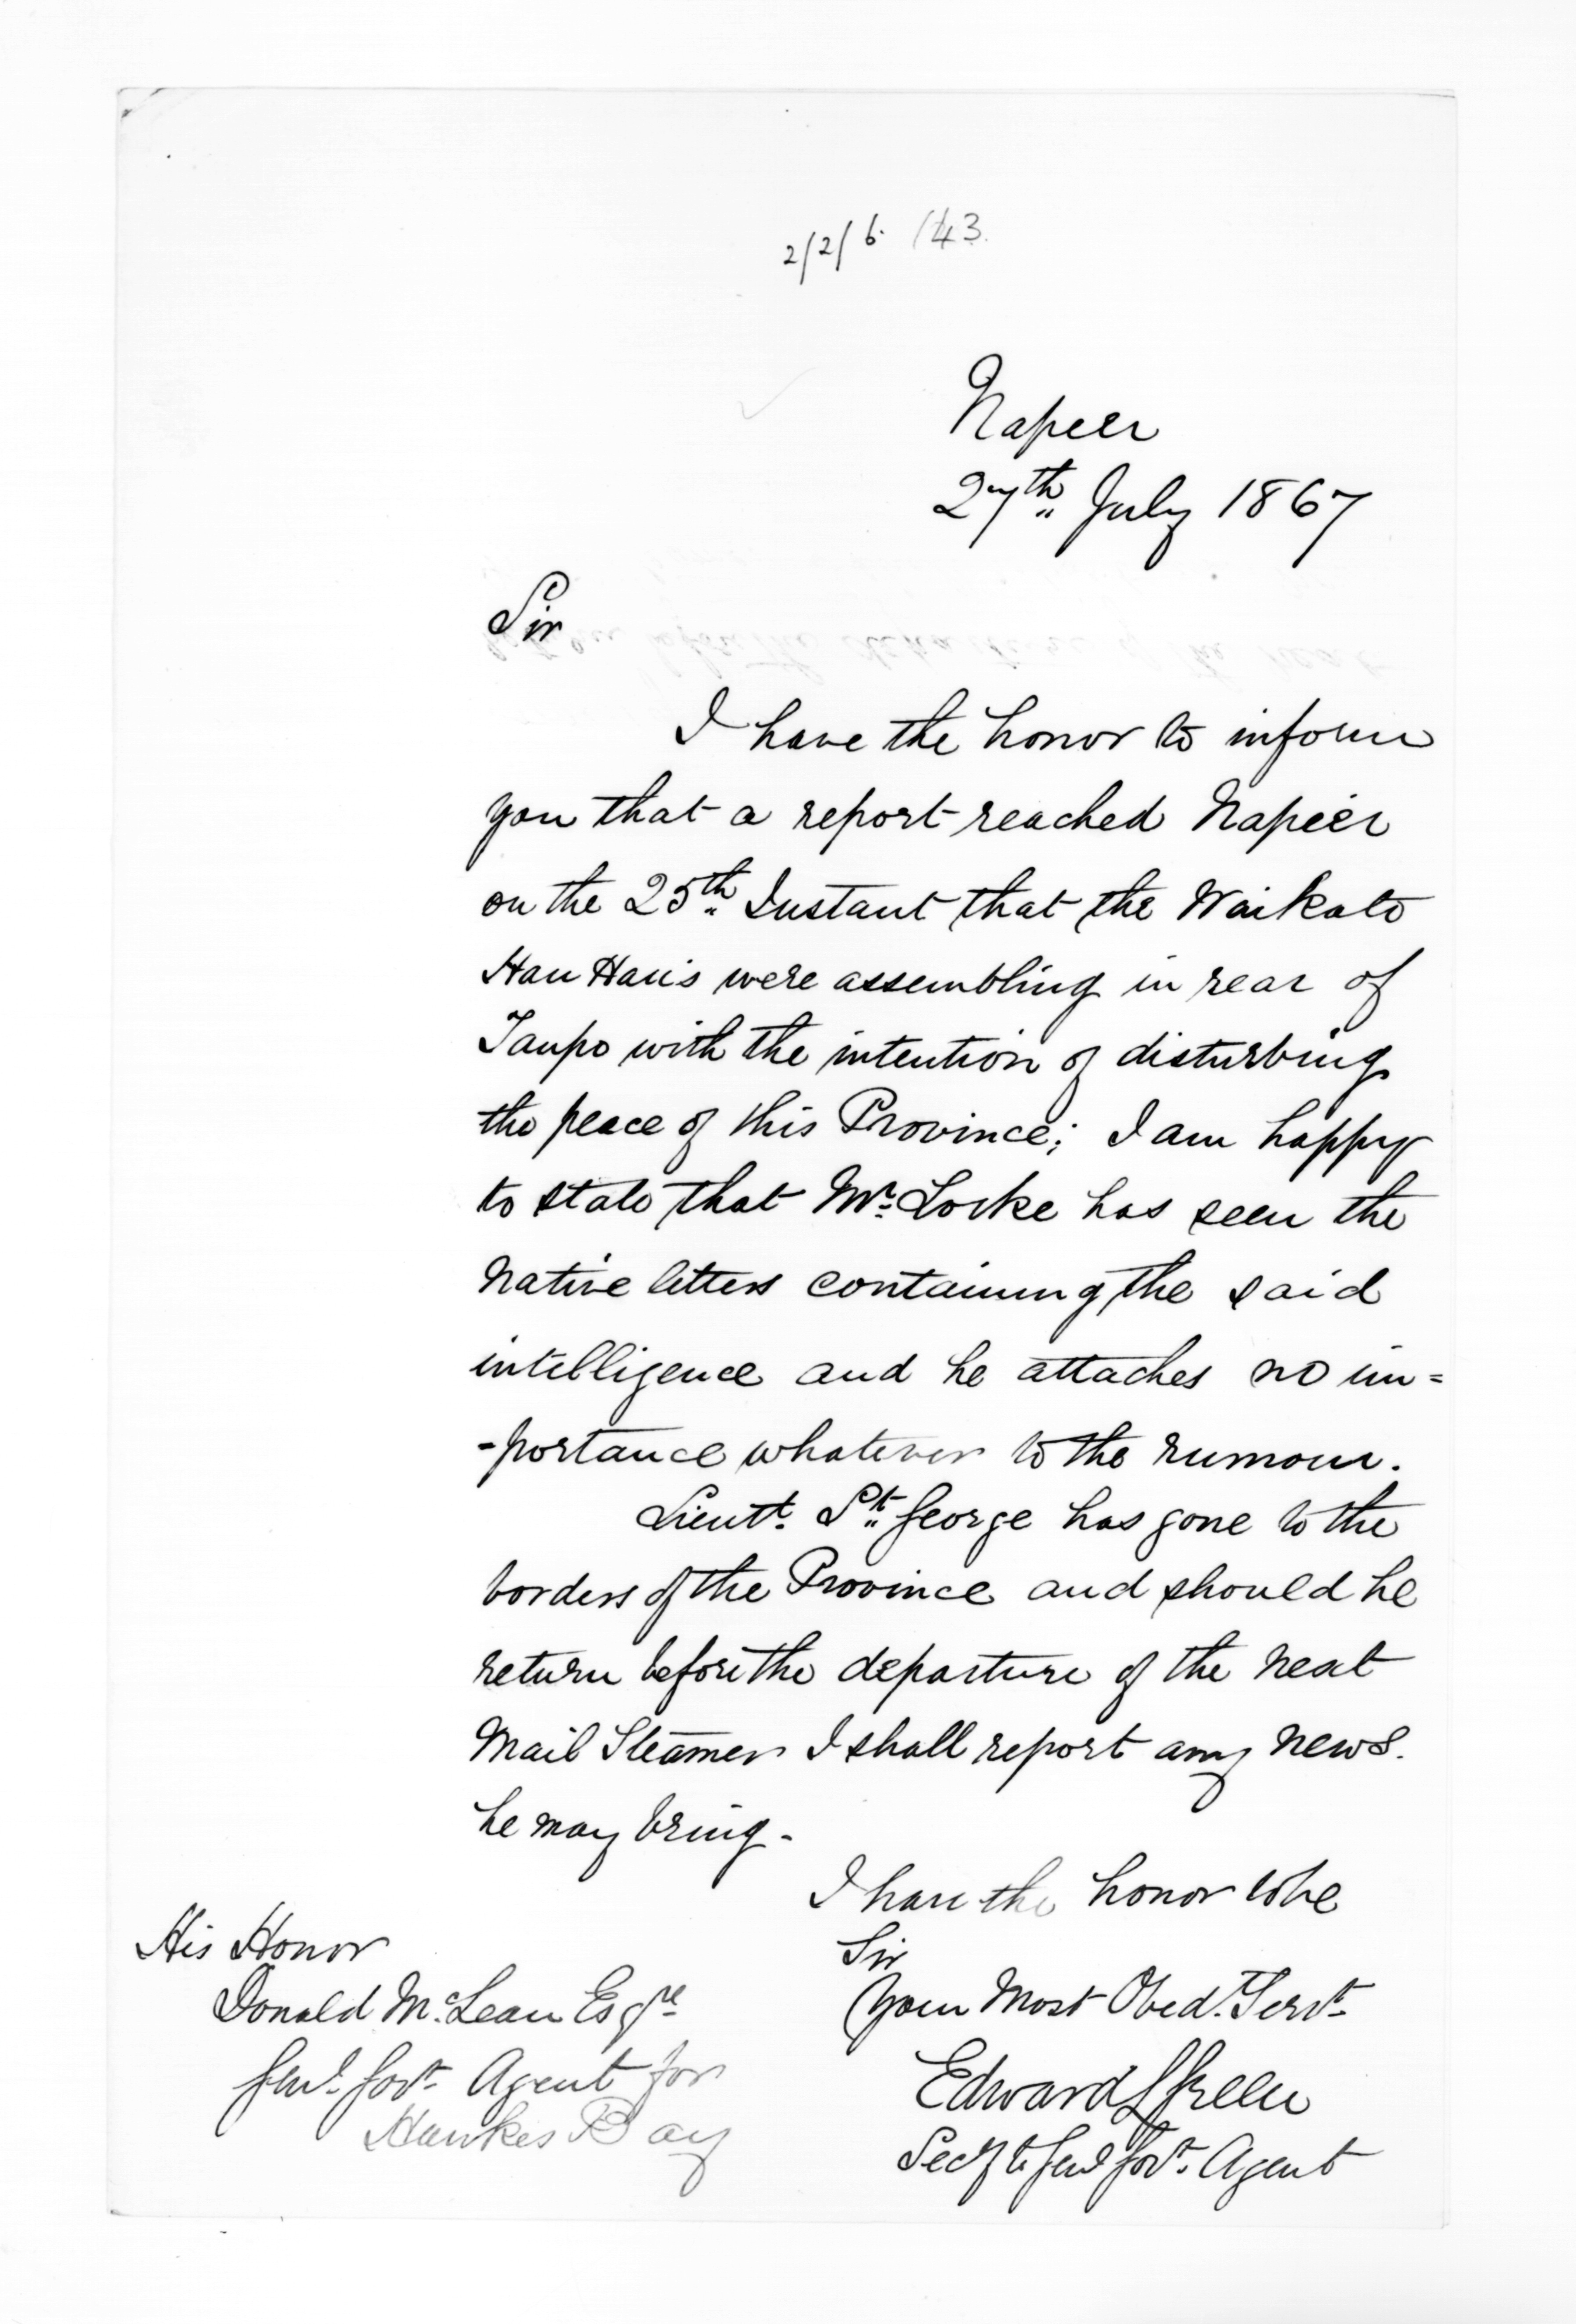 2/2/6. 143.
Napier
27th July 1867
Sir
I have the honor to inform
you that a report reached Napier
on the 25th Instant that the Waikato
Hau Hau's were assembling in rear of
Taupo with the intention of disturbing
the peace of this Province; I am happy
to state that Mr. Locke has seen the
Native letters containing the said
intelligence and he attaches no im=
-portance whatever to the rumour.
Lieutt. St. George has gone to the
borders of the Province and should he
return before the departure of the next
Mail Steamer I shall report any news.
he may bring.
I have the honor to be
Sir
Your Most Obed. Servt.
Edward L Green
Secy to Genl Govt. Agent
His Honor
Donald McLean Esqre
Genl. Govt. Agent for
Hawkes Bay